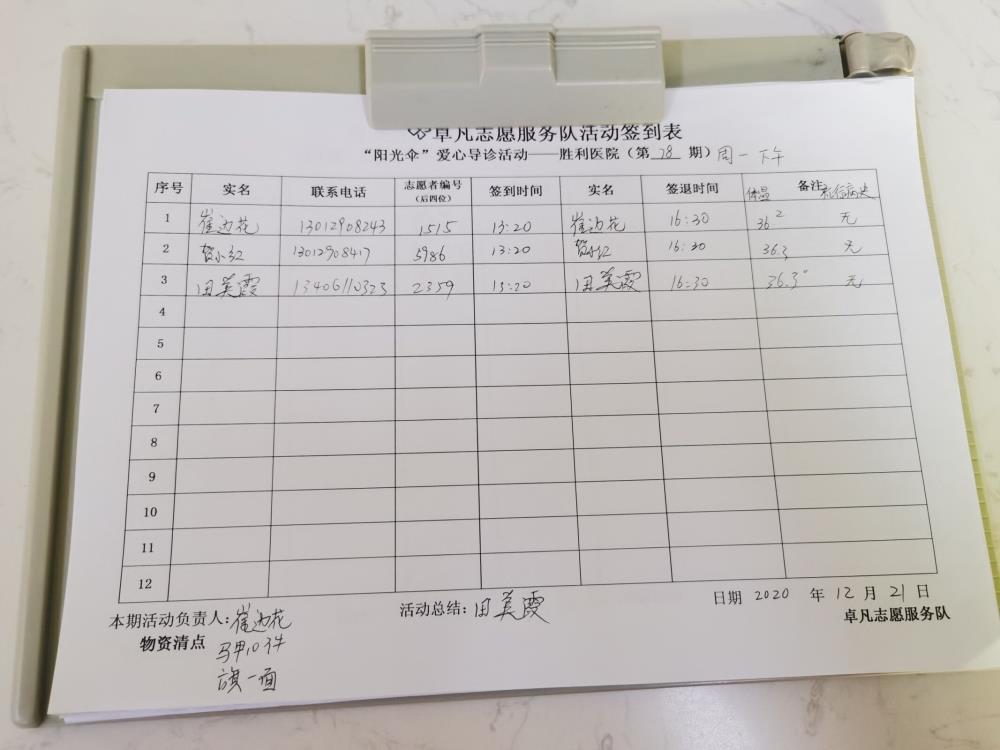 卓凡志愿服务队活动签到表
“阳光伞”爱心导诊活动——胜利医院(第 78 期) 周一下午
序号 实名 联系电话 志愿者编号(后四位) 签到时间 实名 签退时间 体温 备注 流行病史
1 崔边花 13012908243 1515 13:20 崔边花 16:30 36.2 无
2 贺小红 13012908417 5986 13:20 贺小红 16:30 36.3 无
3 田美霞 13406110323 2359 13:20 田美霞 16:30 36.3° 无
4
5
6
7
8
9
10
11
12
本期活动负责人:崔边花 活动总结:田美霞 日期 2020 年 12 月 21 日
物资清点 马甲10件 卓凡志愿服务队
旗一面